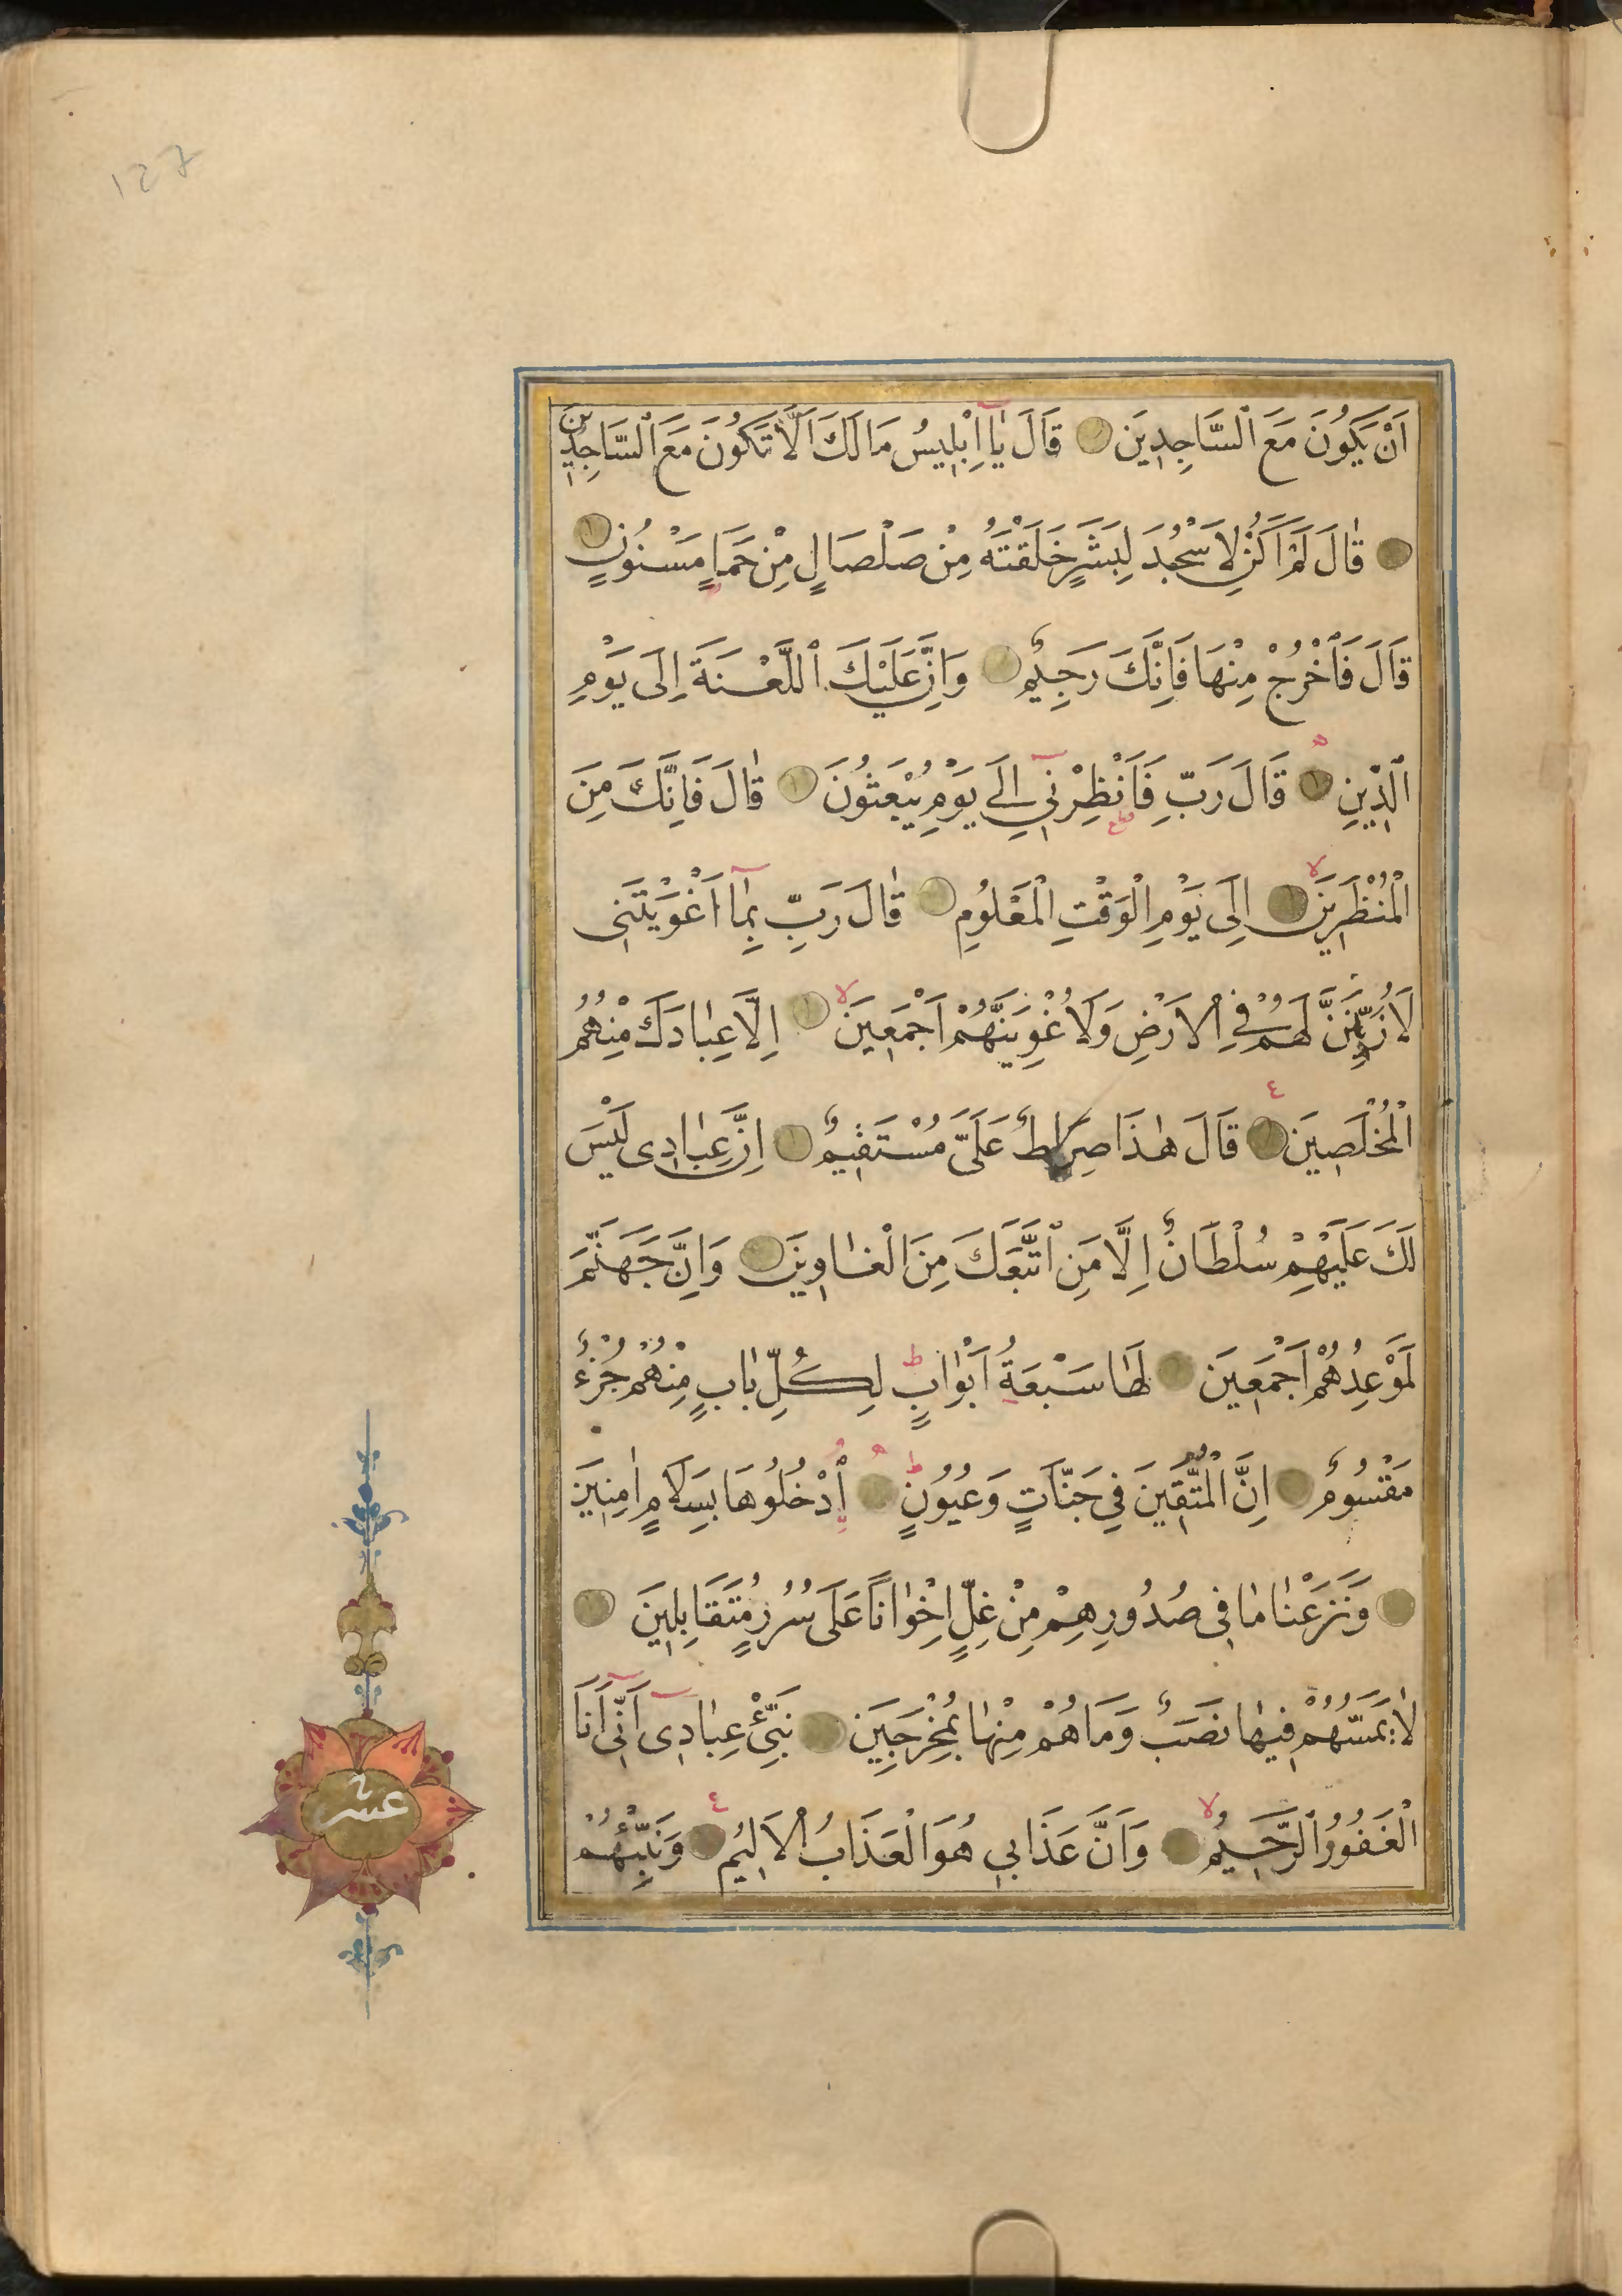 127
اَنْ يَكُونَ مَعَ ٱلسَّاجِدِينَ قَالَ يَٓا اِبْلِيسُ مَالَكَ اَلَّا تَكُونَ مَعَ ٱلسَّاجِدِينَ
قٰالَ لَمْ اَكُنْ لِاَسْجُدَ لِبَشَرٍ خَلَقْتَهُ مِنْ صَلْصَالٍ مِنْ حَمَاٍ مَسْنُونٍ
قَالَ فَٱخْرُجْ مِنْهَا فَاِنَّكَ رَجِيمٌ وَاِنَّ عَلَيْكَ ٱللَّعْنَةَ اِلَى يَوْمِ
ٱلدِّينِ قَالَ رَبِّ فَاَنْظِرْنِي اِلَى يَوْمِ يُبْعَثُونَ قٰالَ فَاِنَّكَ مِنَ
الْمُنْظَرِينَ اِلَى يَوْمِ الْوَقْتِ الْمَعْلُومِ قٰالَ رَبِّ بِمٰٓا اَغْوَيْتَنِى
لَاُزَيِّنَنَّ لَهُمْ فِي الْاَرْضِ وَلَاُغْوِيَنَّهُمْ اَجْمَعِينَ اِلَّا عِبٰادَكَ مِنْهُمُ
الْمُخْلَصِينَ قَالَ هٰذَا صِرٰاطٌ عَلَىَّ مُسْتَقِيمٌ اِنَّ عِبٰادِى لَيْسَ
لَكَ عَلَيْهِمْ سُلْطَانٌ اِلَّا مَنِ ٱتَّبَعَكَ مِنَ الْغٰاوِينَ وَاِنَّ جَهَنَّمَ
لَمَوْعِدُهُمْ اَجْمَعِينَ لَهٰا سَبْعَةُ اَبْوٰابٍ لِكُلِّ بٰابٍ مِنْهُمْ جُزْءٌ
مَقْسُومٌ اِنَّ الْمُتَّقِينَ فِي جَنّٰاتٍ وَعُيُونٍ اُدْخُلُوهَا بِسَلَامٍ اٰمِنِينَ
وَنَزَعْنٰا مٰا فِى صُدُورِهِمْ مِنْ غِلٍّ اِخْوٰاناً عَلَى سُرُرٍ مُتَقَابِلِينَ
لٰا يَمَسُّهُمْ فِيهٰا نَصَبٌ وَمَا هُمْ مِنْهٰا بِمُخْرَجِينَ نَبِّئْ عِبٰادِىٓ اَنِّىٓ اَنَا
الْغَفُورُ ٱلرَّحِيمُ وَاَنَّ عَذَابِي هُوَ الْعَذَابُ الْاَلِيمُ وَنَبِّئْهُمْ
عشر